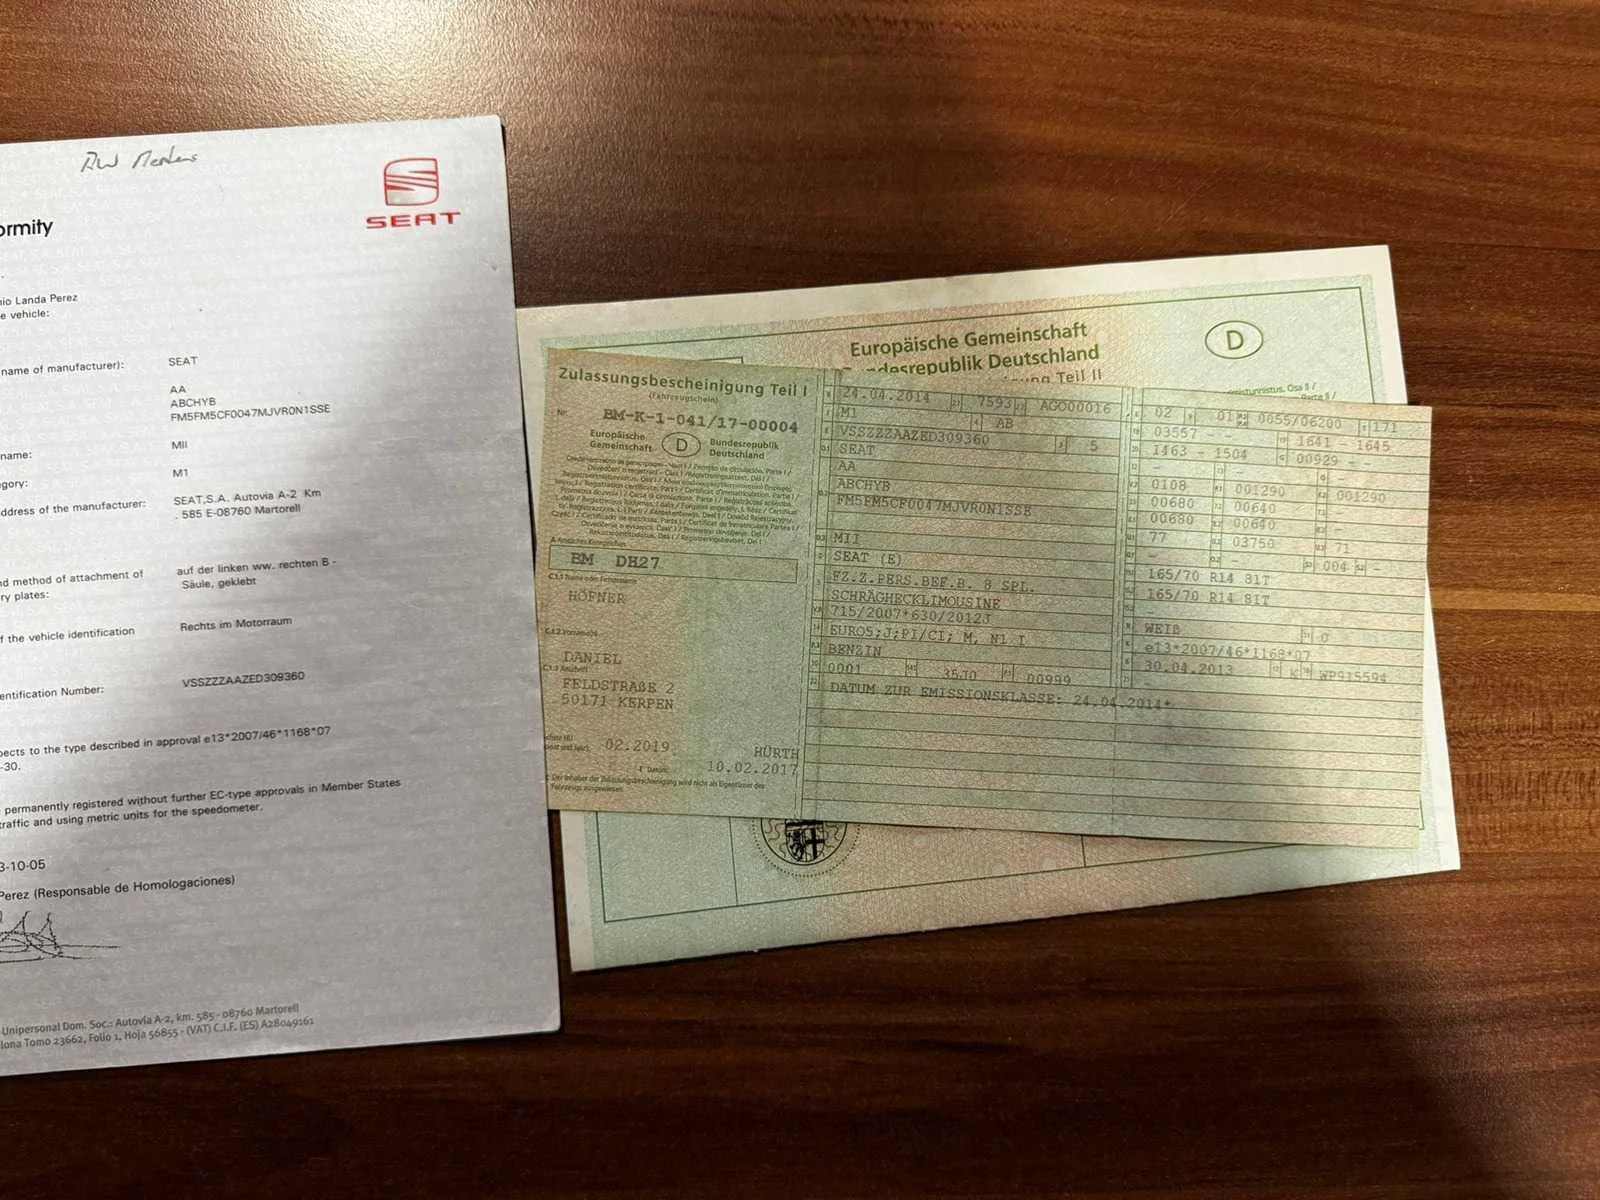 SEAT
ormity
io Landa Perez
e vehicle:
name of manufacturer): SEAT
AA
ABCHYB
FM5FM5CF0047MJVR0N1SSE
name: MII
gory: M1
ddress of the manufacturer: SEAT,S.A. Autovia A-2 Km
. 585 E-08760 Martorell
nd method of attachment of auf der linken ww. rechten B -
ry plates: Säule, geklebt
f the vehicle identification Rechts im Motorraum
entification Number: VSSZZZAAZED309360
pects to the type described in approval e13*2007/46*1168*07
-30.
permanently registered without further EC-type approvals in Member States
traffic and using metric units for the speedometer.
3-10-05
Perez (Responsable de Homologaciones)
Unipersonal Dom. Soc.: Autovía A-2, km. 585 - 08760 Martorell
lona Tomo 23662, Folio 1, Hoja 56855 - (VAT) C.I.F. (ES) A28049161
Europäische Gemeinschaft
ndesrepublik Deutschland
Teil II
D
Zulassungsbescheinigung Teil I
(Fahrzeugschein)
Nr. BM-K-1-041/17-00004
Europäische Gemeinschaft
D
Bundesrepublik Deutschland
BM DH27
C.1.1 Name oder Firmenname
HÖFNER
C.1.2 Vorname(n)
DANIEL
C.1.3 Anschrift
FELDSTRAßE 2
50171 KERPEN
02.2019
HÜRTH
10.02.2017
24.04.2014 7593 AGO00016
M1 AB
VSSZZZAAZED309360 5
SEAT
AA
ABCHYB
FM5FM5CF0047MJVR0N1SSE
MII
SEAT (E)
FZ.Z.PERS.BEF.B. 8 SPL.
SCHRÄGHECKLIMOUSINE
715/2007*630/2012J
EURO5;J;PI/CI; M, N1 I
BENZIN
0001 35J0 00999
DATUM ZUR EMISSIONSKLASSE: 24.04.2014*
02 01 0055/06200 171
03557 - - 1641 - 1645
1463 - 1504 00929 - -
- - -
0108 001290 001290
00680 00640 -
00680 00640 -
77 03750 71
- - 004 -
165/70 R14 81T
165/70 R14 81T
-
WEIß 0
e13*2007/46*1168*07
30.04.2013 K WP915594